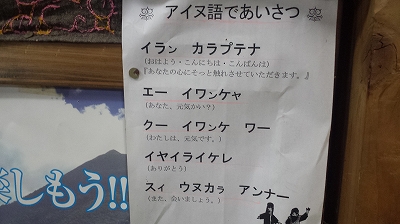 アイヌ語であいさつ
イラン カラㇷ゚テナ
(おはよう・こんにちは・こんばんは)
『あなたの心にそっと触れさせていただきます。』
エー イワンケヤ
(あなた、元気かい？)
クー イワンケ ワー
(わたしは、元気です。)
イヤイライケレ
(ありがとう)
スィ ウヌカラ アンナー
(また、会いましょう。)
楽しもう!!